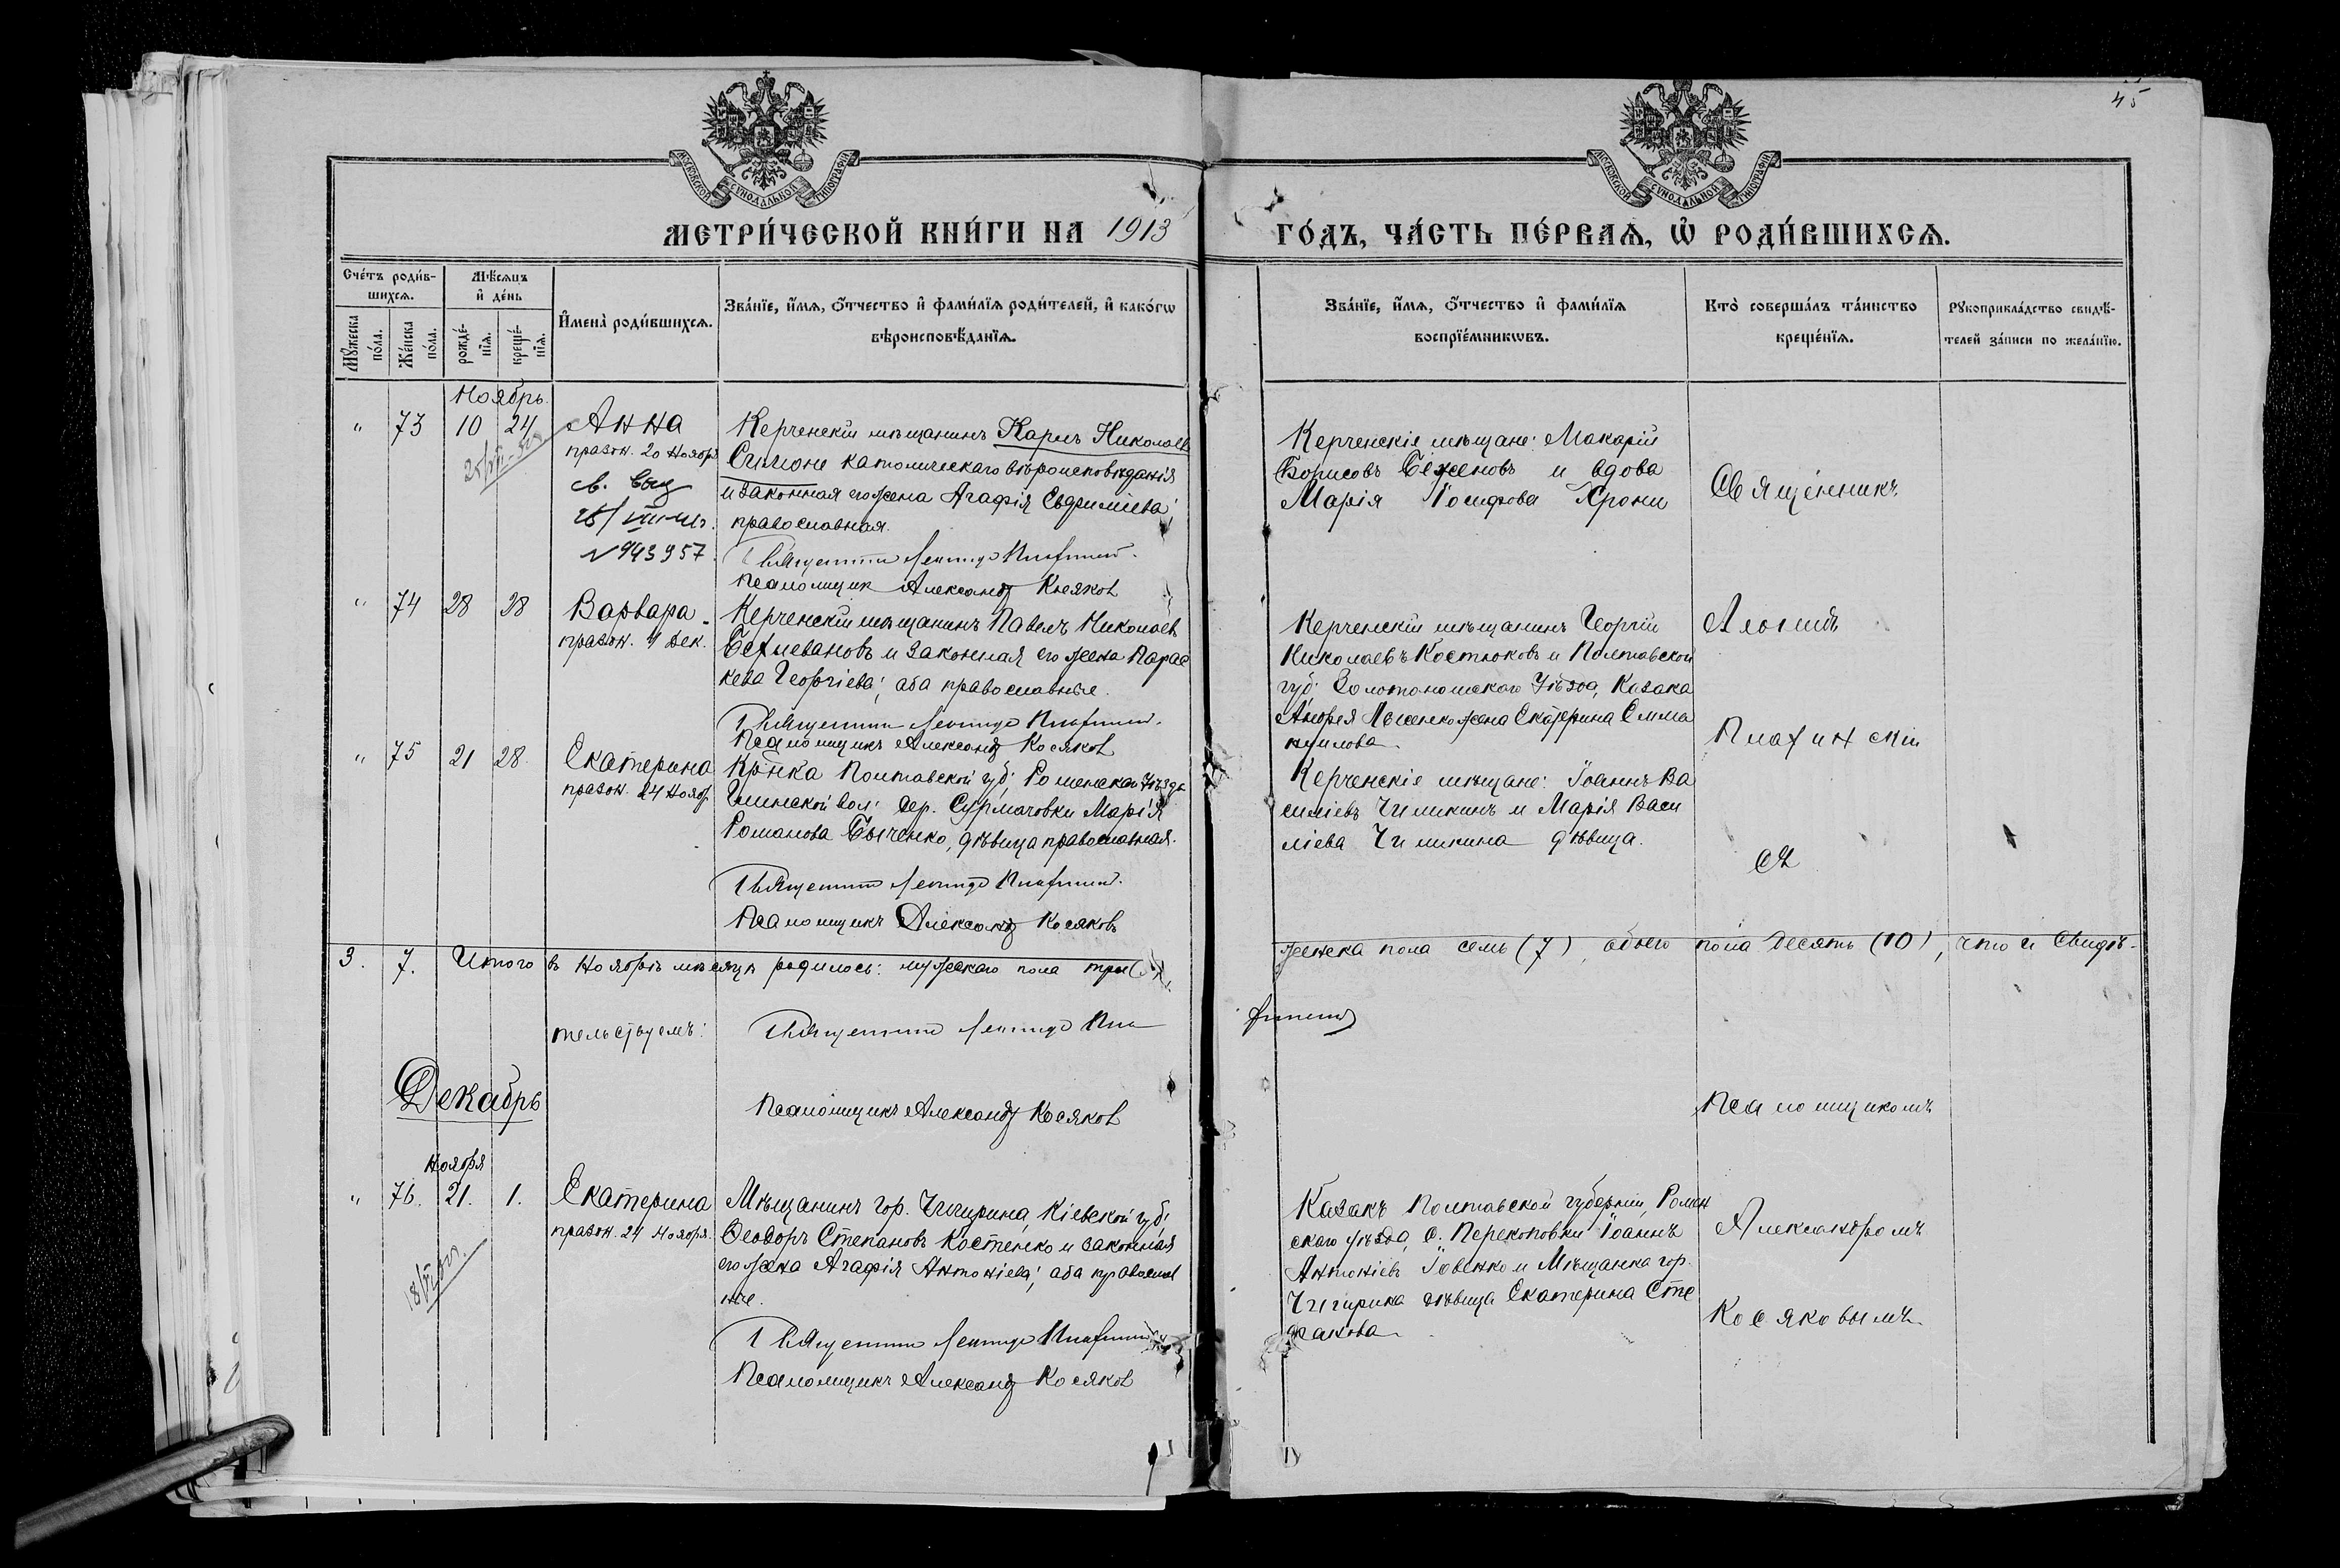 45
МОСКОВСКОЙ СѴНОДАЛЬНОЙ ТИПОГРАФІИ
МОСКОВСКОЙ СѴНОДАЛЬНОЙ ТИПОГРАФІИ
МЕТРИ́ЧЕСКОЙ КНИ́ГИ НА 1913 ГО́ДЪ, ЧА́СТЬ ПЕ́РВАѦ, Ѡ҆ РОДИ́ВШИХСѦ.
Сче́тъ роди́в-
шихсѧ.
Мꙋ́жеска по́ла.
Же́нска по́ла.
Мѣ́сѧцъ
и҆ де́нь
рожде́-
нїѧ.
креще́-
нїѧ.
И҆мена̀ роди́вшихсѧ.
Зва́нїе, и҆́мѧ, ѻ҆́тчество и҆ фамі́лїѧ роди́телей, и҆ како́гѡ
вѣроисповѣ́данїѧ.
Зва́нїе, и҆́мѧ, ѻ҆́тчество и҆ фамі́лїѧ
воспрїе́мникѡвъ.
Кто̀ соверша́лъ та́инство
креще́нїѧ.
Рꙋкоприкла́дство свидѣ́-
телей за́писи по жела́нїю.
Ноябрь.
" 73 10 24 Анна
празн. 20 Ноября
№ 943957
Керченскій мѣщанинъ Карлъ Николаев
Симоне католическаго вѣроисповѣданія
и законная его жена Агафія Евфиміева;
православная.
Священникъ Леонидъ
Псаломщик Александр Косяков
Керченскіе мѣщане: Макарій
Борисовъ Беженовъ и вдова
Марія Іосифова Хрони
Священникъ
" 74 28 28 Варвара
празн. 4 Дек.
Керченскій мѣщанинъ Павелъ Николаев
и законная его жена Парас
кева Георгіева; аба православные.
Священникъ Леонидъ
Псаломщикъ Александр Косяков
Керченскій мѣщанинъ Георгій
Николаевъ Костюковъ и Полтавской
губ. Золотоношскаго уѣзда, Казака
Андрея Лысенко жена Екатерина Емма
нуилова.
" 75 21 28 Екатерина
празн. 24 Нояб.
Кр-нка Полтавской губ; Роменскаго уѣзда
вол. дер. Сурмачовки Марія
Романова Быченко, дѣвица православная.
Священникъ Леонидъ
Псаломщикъ Александр Косяковъ
Керченскіе мѣщане: Іоаннъ Ва
силіевъ Чиликинъ и Марія Васи
ліева Чиликина дѣвица.
3. 7. Итого в Ноябрѣ мѣсяцѣ родилось: мужескаго пола три женска пола семь (7), обоего пола десять (10), что и свидѣ-
тельствуемъ: Священникъ Леонидъ
Псаломщикъ Александр Косяков
Декабрь
Ноября
" 76. 21. 1. Екатерина
празн. 24 Ноября.
Мѣщанинъ гор. Чигирина, Кіевской губ;
Ѳеодоръ Степановъ Костенко и законная
его жена Агафія Антоніева; аба православ
ные.
Священникъ Леонидъ
Псаломщикъ Александр Косяков
Казакъ Полтавской губерніи, Ромен
скаго уѣзда, с. Перекоповки Іоаннъ
Антоніевъ Іовенко и Мѣщанка гор.
Чигирина дѣвица Екатерина Сте
панова
Псаломщикомъ
Александромъ
Косяковымъ